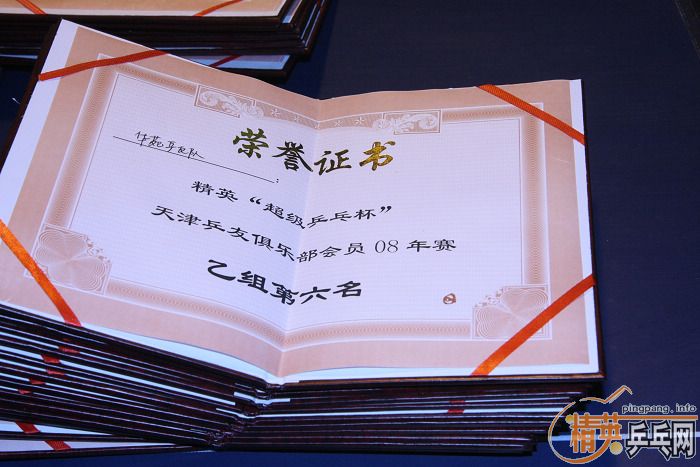 荣誉证书
队:
精英“超级乒乓杯”
天津乒友俱乐部会员08年赛
乙组第六名
pingpang.info
精英乒乓网